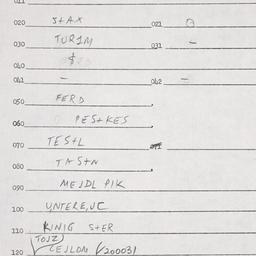 011
020 STAX 021
030 TURIM 031 –
040 $
041 – 042 –
050 FERD
060 PESTKES
070 TESTL
080 TASTN
090 MEJDL PIK
100 UNTERE,JC
110 KINIG STER
TOJZ)
120 CEJLDM (200031